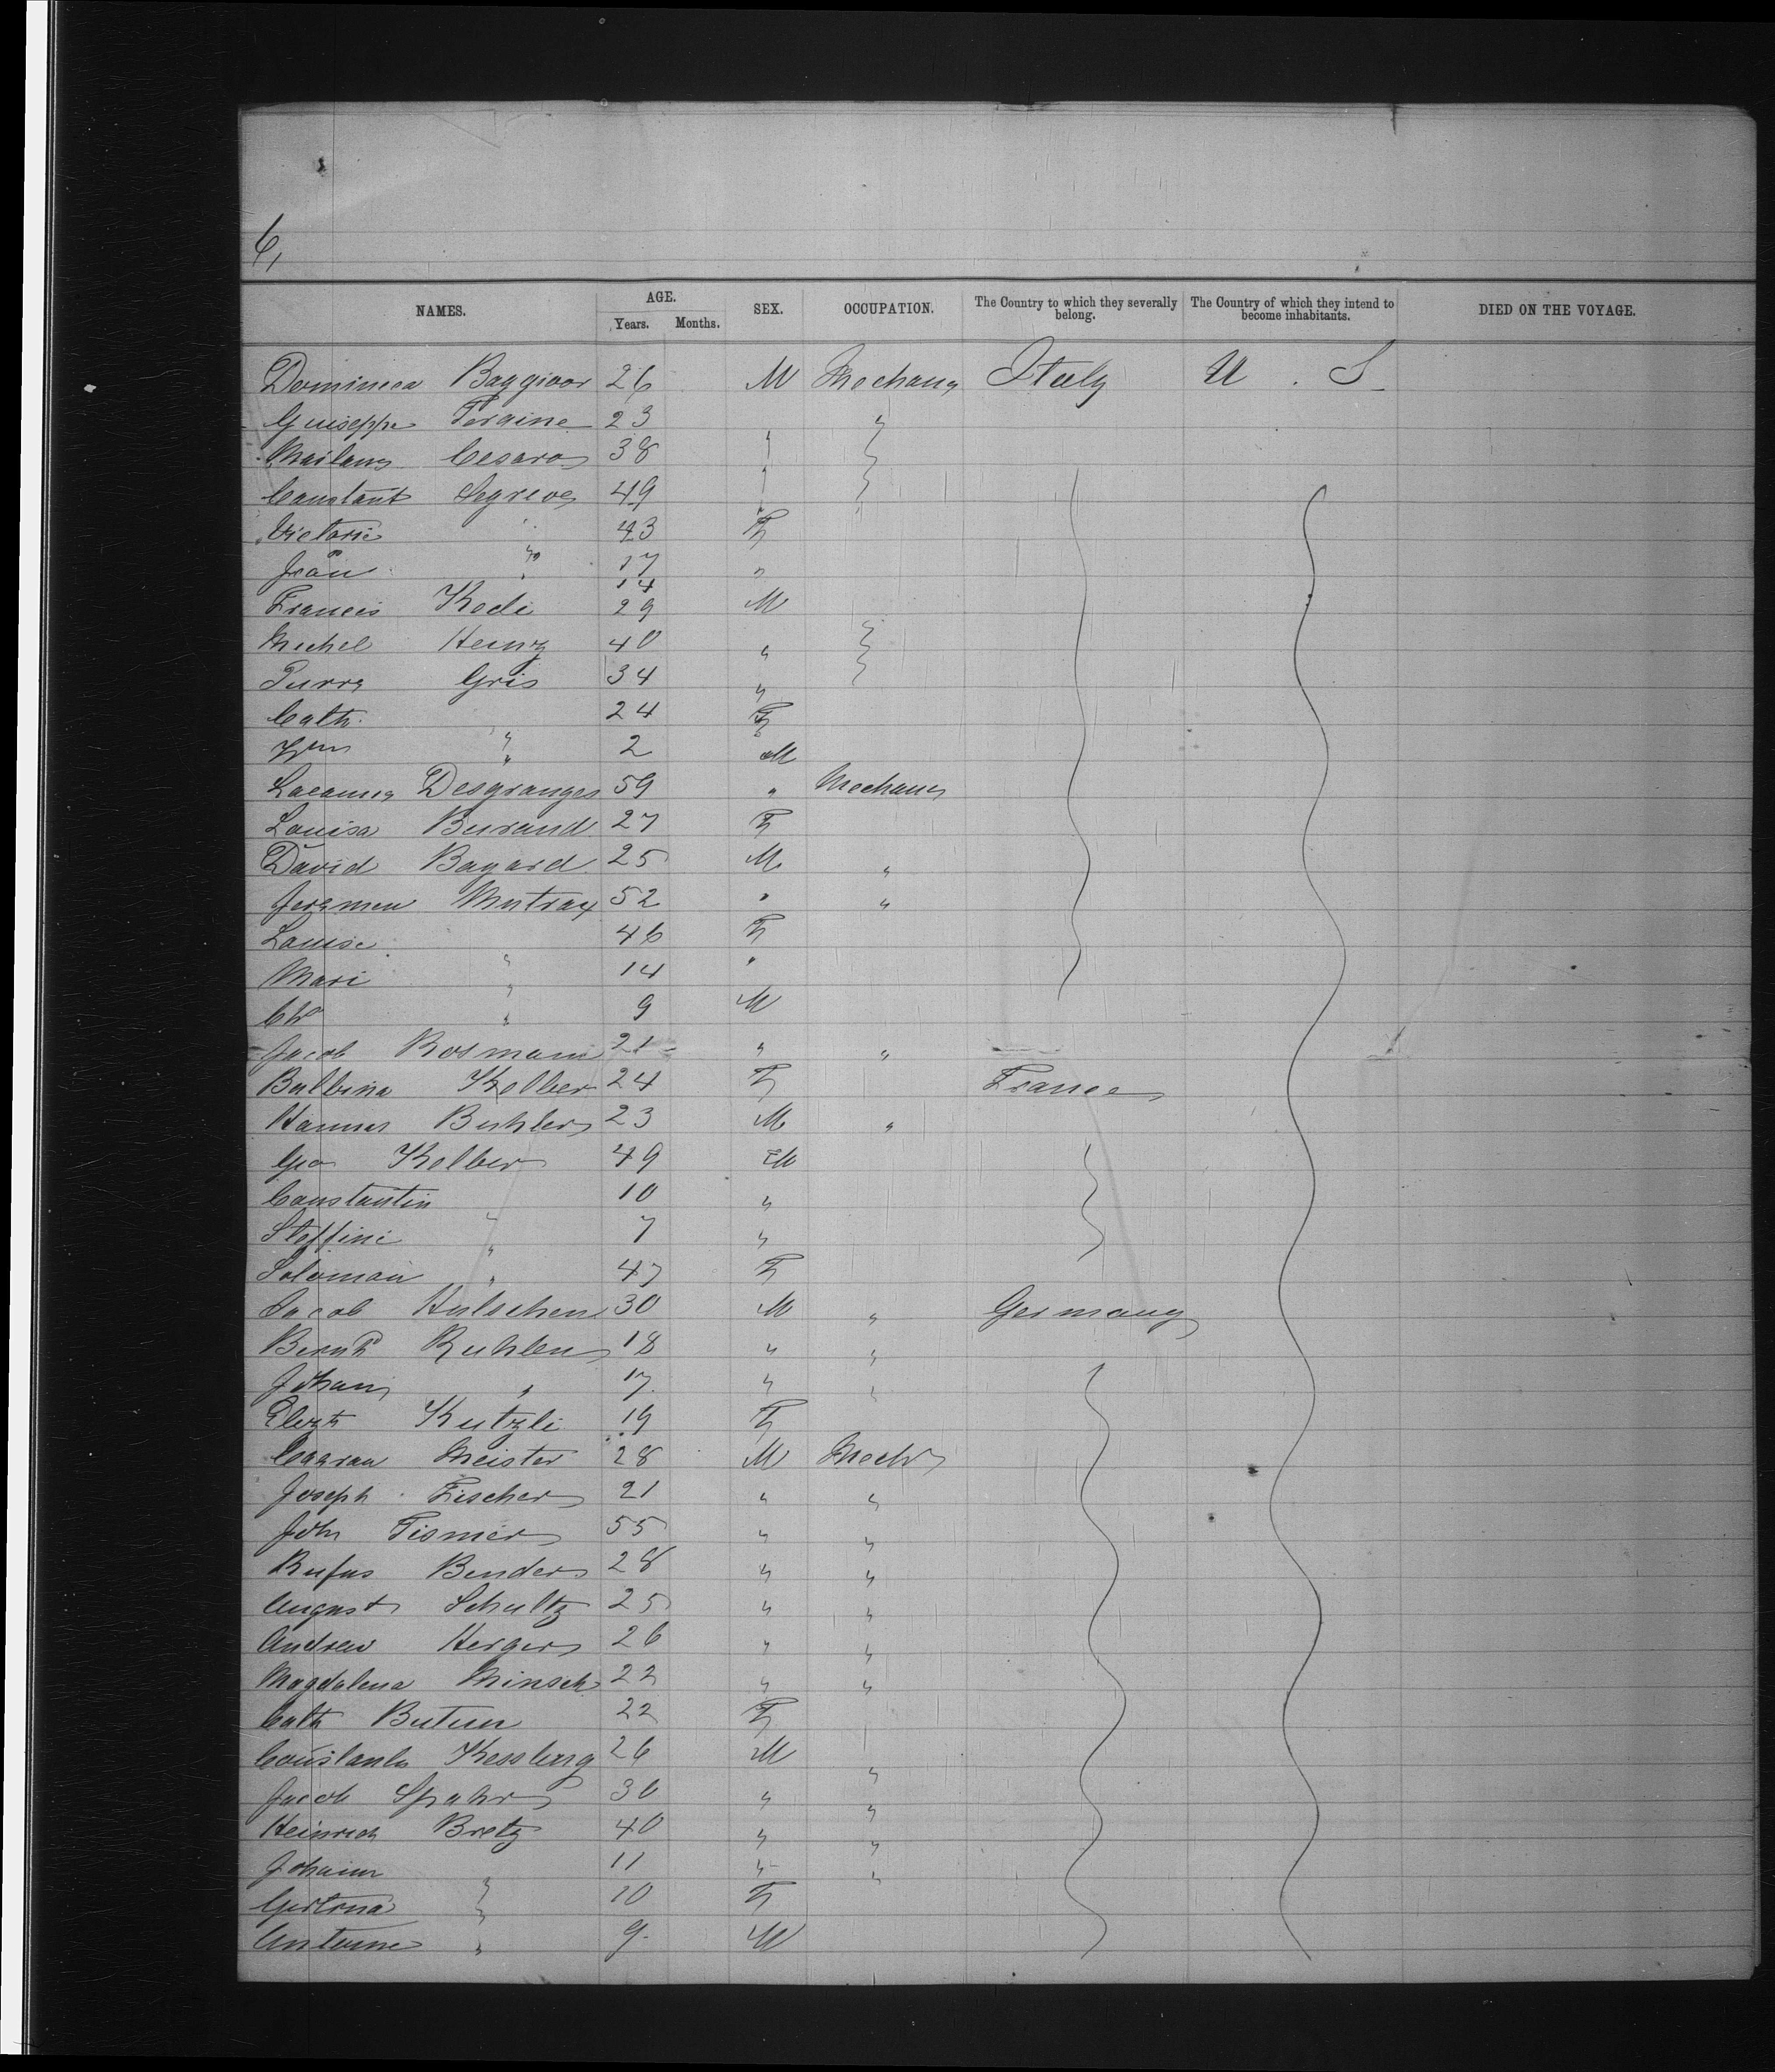 6,
NAMES. AGE. Years. Months. SEX. OCCUPATION. The Country to which they severally belong. The Country of which they intend to become inhabitants. DIED ON THE VOYAGE.
Dominica Baggioor 26 M Mechanic Italy U. S.
Guiseppe Pergine 23 "
Cesaro 38 " "
Constant Segreve 49 " "
Victorie " 43 F
Jean " 17 "
14
Francis Kodi 29 M
Michel Heinz 40 " "
Pierre Gris 34 " "
Cath. 24 F
Wm " 2 M
Desgranges 59 " Mechanic
Louisa Burand 27 F
David Bayard 25 M "
Mutrax 52 " "
Louise 46 F
Mari " 14 "
Chs " 9 M
Jacob Rosmann 21 " "
Balbina Kolber 24 F France
Hannes Buhler 23 M "
Geo Kolber 49 M
Constantin 10 "
Steffini " 7 "
Soloman " 47 F
Jacob Hulschen 30 M " Germany
Bernhd Ruhlen 18 " "
Johann " 17 " "
Elizth Kutzli 19 F
Meister 28 M Mech
Joseph Fischer 21 " "
John Tismer 55 " "
Rufus Bender 28 " "
August Schultz 25 " "
Andrew Herger 26 " "
Magdalena Minsch 22 " "
Cath Butun 22 F
Kessberg 26 M "
Jacob Spahr 30 " "
Heinrich Bretz 40 " "
Johann 11 " "
Gertrud " 10 F
Antoine " 9 M